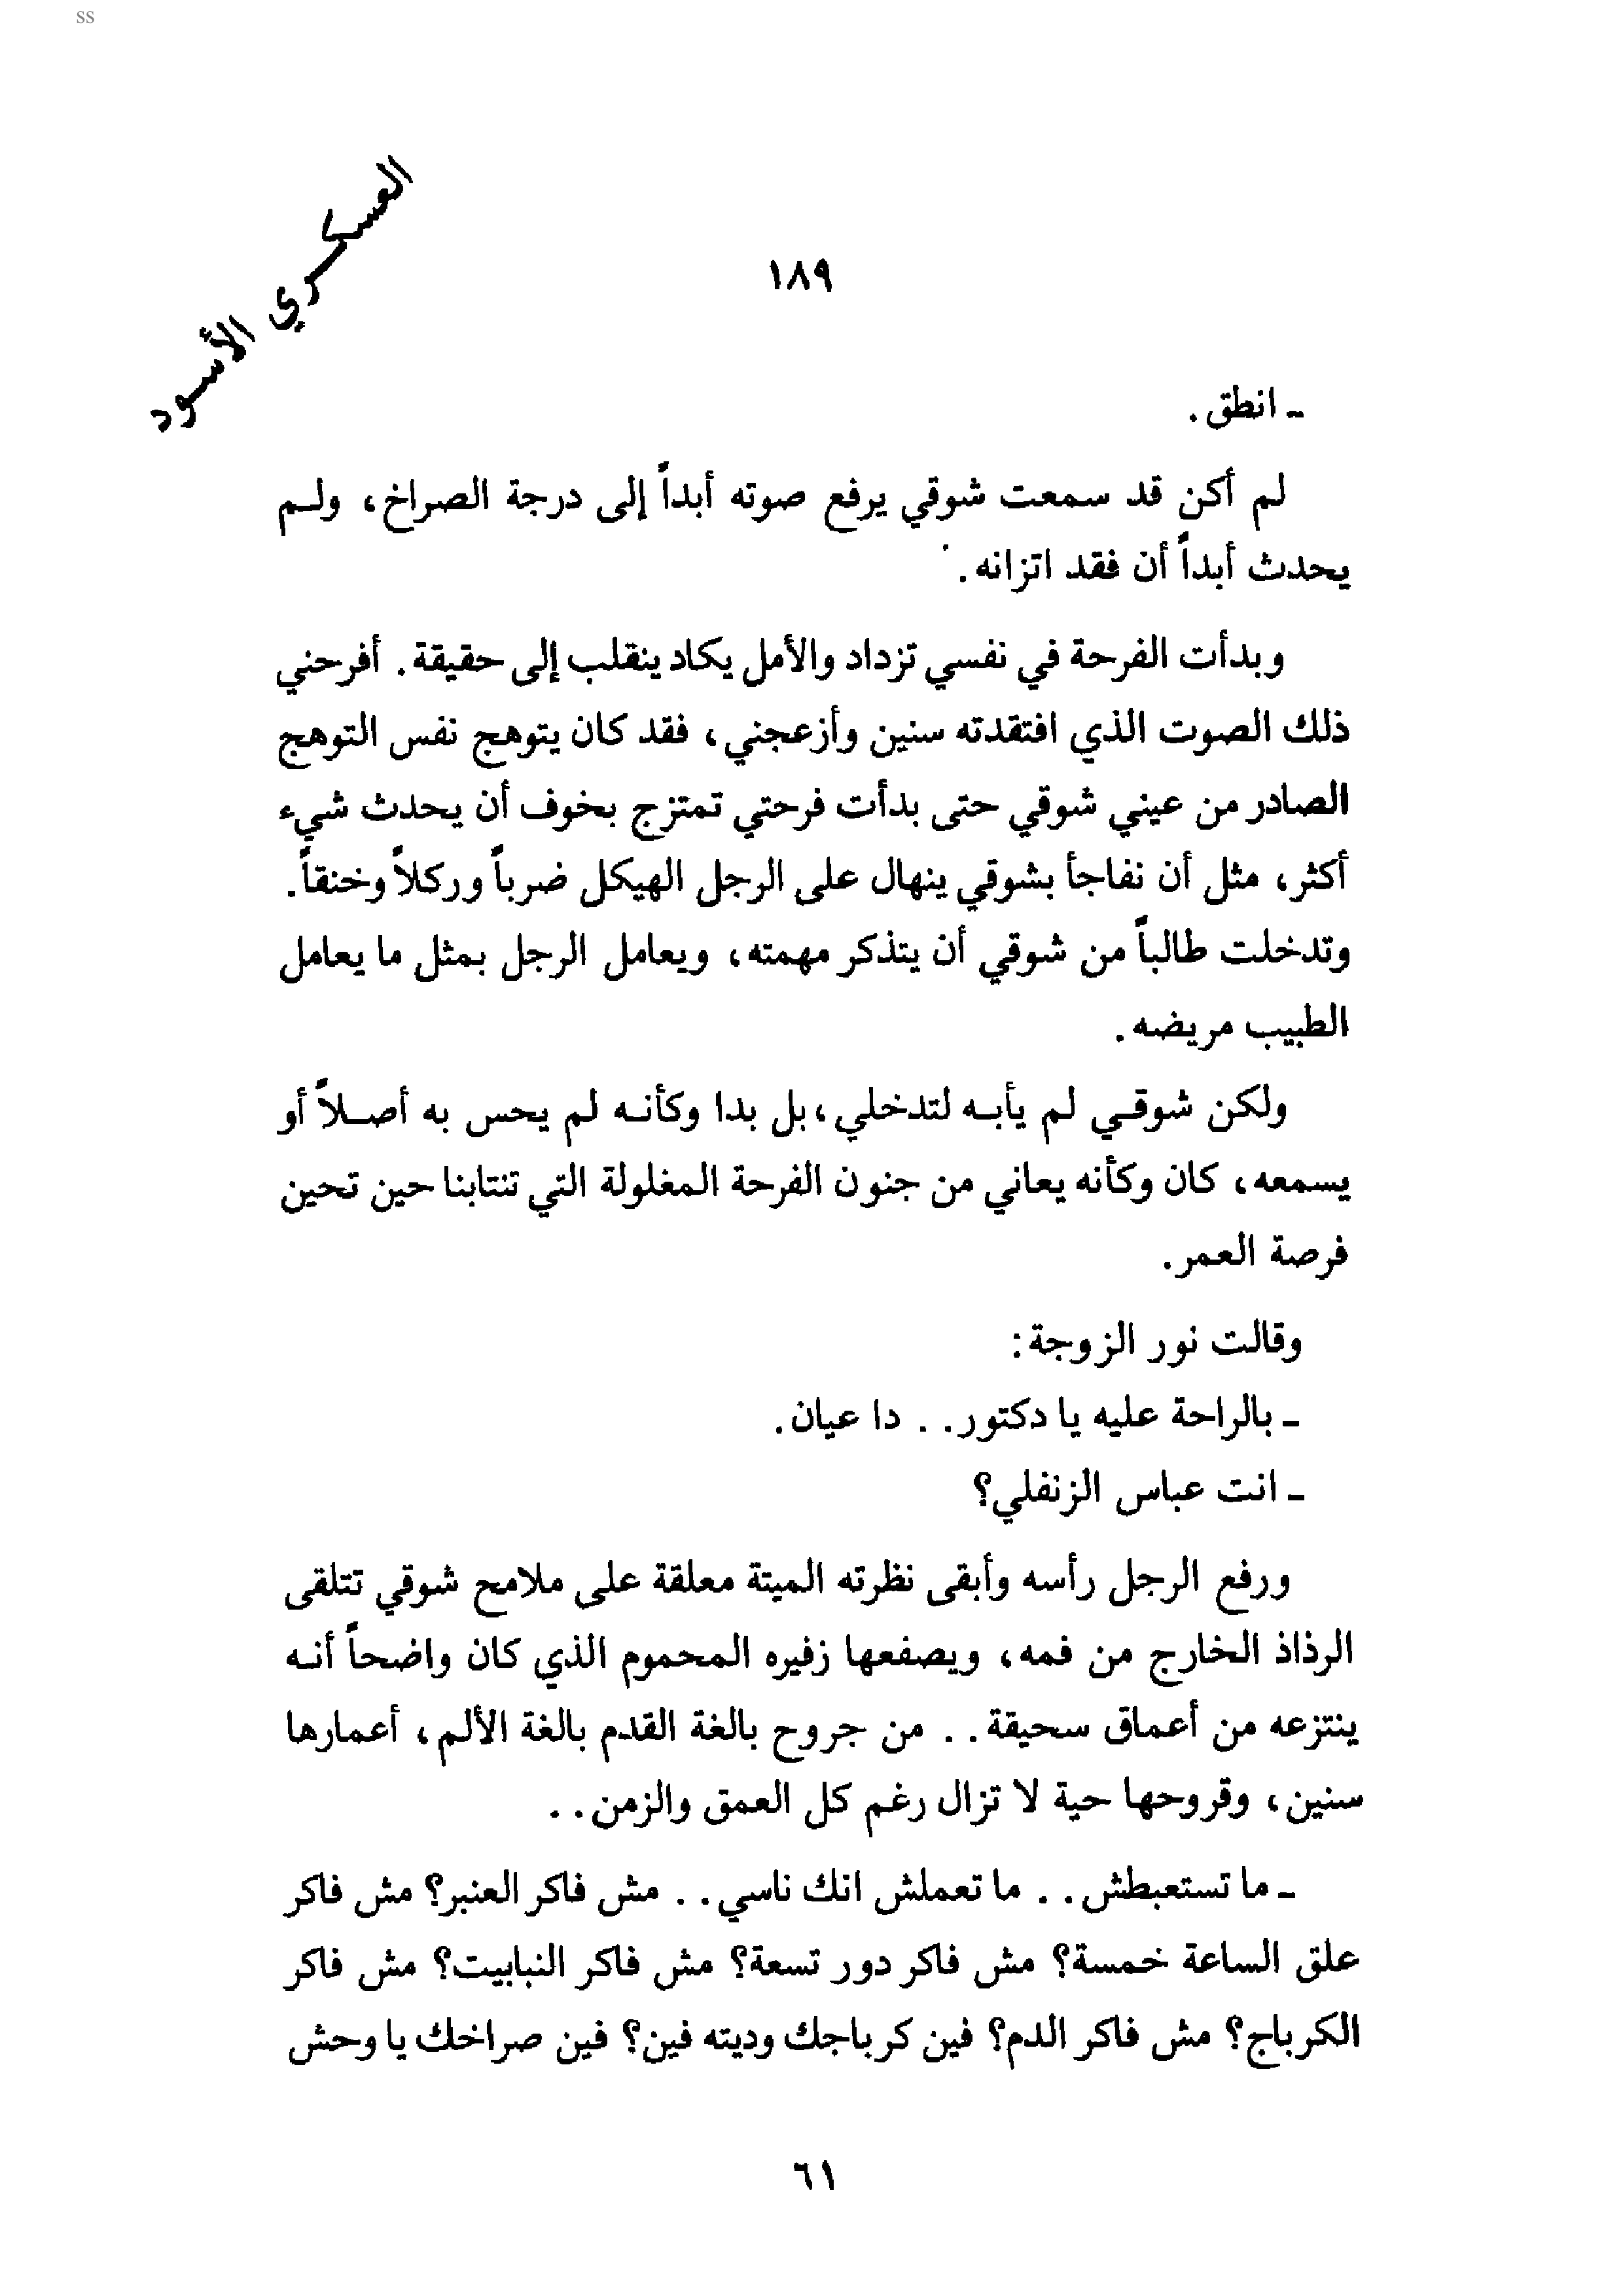 ss
العسكري الأسود
١٨٩
ـ انطق .
لم أكن قد سمعت شوقي يرفع صوته أبداً إلى درجة الصراخ، ولـم
يحدث أبداً أن فقد اتزانه .
وبدأت الفرحة في نفسي تزداد والأمل يكاد ينقلب إلى حقيقة . أفرحني
ذلك الصوت الذي افتقدته سنين وأزعجني، فقد كان يتوهج نفس التوهج
الصادر من عيني شوقي حتى بدأت فرحتي تمتزج بخوف أن يحدث شيء
أكثر، مثل أن نفاجأ بشوقي ينهال على الرجل الهيكل ضرباً وركلاً وخنقاً .
وتدخلت طالباً من شوقي أن يتذكر مهمته، ويعامل الرجل بمثل ما يعامل
الطبيب مريضه .
ولكن شوقـي لم يأبـه لتدخلي، بل بدا وكأنـه لم يحس به أصـلاً أو
يسمعه، كان وكأنه يعاني من جنون الفرحة المغلولة التي تنتابنا حين تحين
فرصة العمر .
وقالت نور الزوجة :
ـ بالراحة عليه يا دكتور . . دا عيان .
ـ انت عباس الزنفلي؟
ورفع الرجل رأسه وأبقى نظرته الميتة معلقة على ملامح شوقي تتلقى
الرذاذ الخارج من فمه، ويصفعها زفيره المحموم الذي كان واضحاً أنـه
ينتزعه من أعماق سحيقة . . من جروح بالغة القدم بالغة الألم، أعمارها
سنين، وقروحها حية لا تزال رغم كل العمق والزمن . .
ـ ما تستعبطش . . ما تعملش انك ناسي . . مش فاكر العنبر؟ مش فاكر
علق الساعة خمسة؟ مش فاكر دور تسعة؟ مش فاكر النبابيت؟ مش فاكر
الكرباج؟ مش فاكر الدم؟ فين كرباجك وديته فين؟ فين صراخك يا وحش
٦١